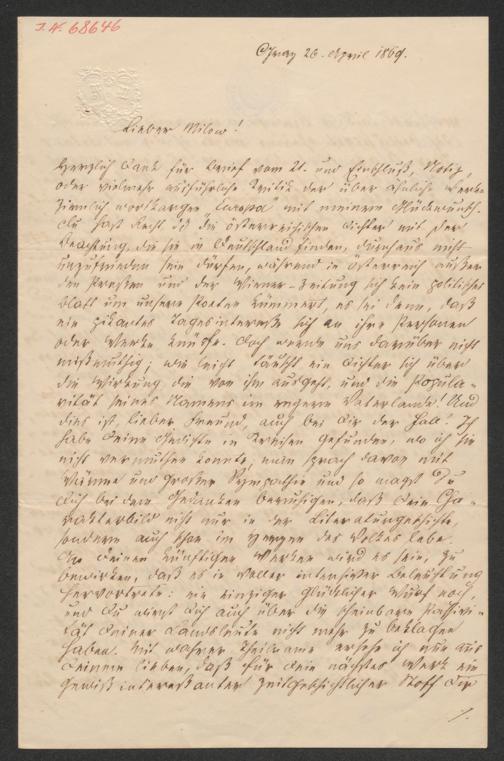 I.N. 68646
Graz 26. April 1869.
Lieber Milow!
Herzlich Dank für Brief vom 21. und Einschluß, Notiz,
oder vielmehr ausführliche Kritik der über ähnliche Werke
ziemlich wortkargen "Europa" mit meinem Glückwunsch.
Du hast Recht daß die österreichischen Dichter mit der
Beachtung, die sie in Deutschland finden, durchaus nicht
unzufrieden sein dürfen, während in Österreich außer
der Pressen und der Wiener-Zeitung sich kein politisches
Blatt um unsere Poeten kümmert, es sei denn, daß
ein pikantes Tagesinteresse sich an ihre Personen
oder Werke knüpfe. Doch werde uns darüber nicht
mißmuthig; wie leicht täuscht ein Dichter sich über
die Wirkung die von ihm ausgeht, und die Popula-
rität seines Namens im engern Vaterlande! Und
dies ist, lieber Freund, auch bei Dir der Fall. Ich
habe Deine Gedichte in Kreisen gefunden, wo ich sie
nicht vermuthen konnte, man sprach davon mit
Wärme und großer Sympathie und so magst Du
Dich bei dem Gedanken beruhigen, daß Dein Cha-
rakterbild nicht nur in der Literaturgeschichte,
sondern auch schon im Herzen des Volkes lebe.
An Deinen künftigen Werken wird es sein, zu
bewirken, daß es in voller intensiver Beleuchtung
hervortrete: ein einziger glücklicher Wurf noch,
und Du wirst Dich auch über die scheinbare Passivi-
tät Deiner Landsleute nicht mehr zu beklagen
haben. Mit wahrer Theilname ersehe ich nun aus
Deinem lieben, daß für Dein nächstes Werk ein
gewiß interessanter zeitgeschichtlicher Stoff Dir